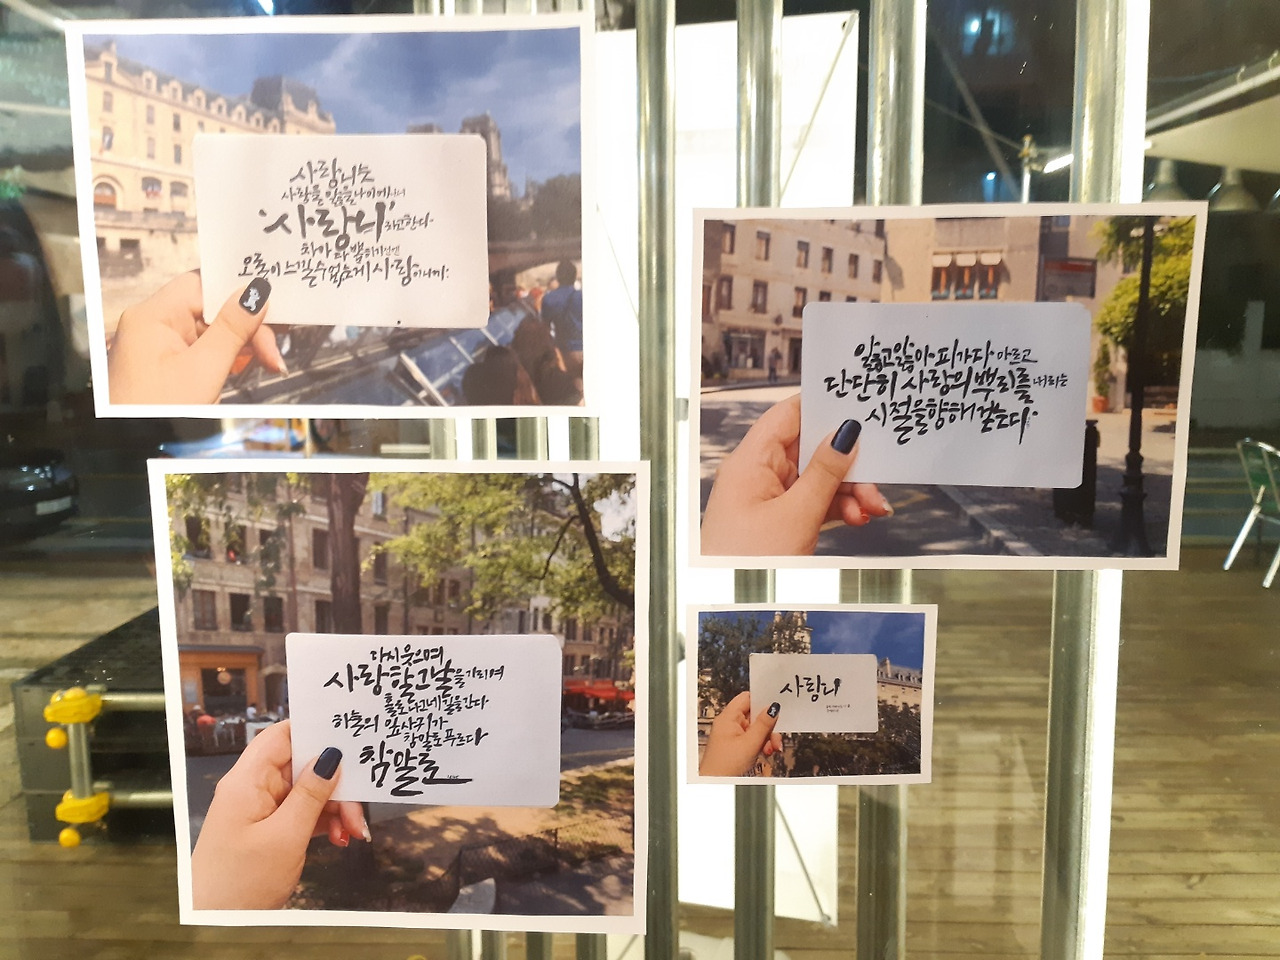 사랑니는
사랑을 앓을 나이에
'사랑니'라고 한다
차가
오롯이 느낄 수 없는 게 사랑이니까.
앓고 앓아 피가 다 마르고
단단히 사랑의 뿌리를 내리는
시절을 향해 걷는다.
다시 웃으며
사랑할 그날을 기리며
홀로 나고 네 길을 간다
하늘의 잎사귀가
참말로 푸르다
참말로
사랑니